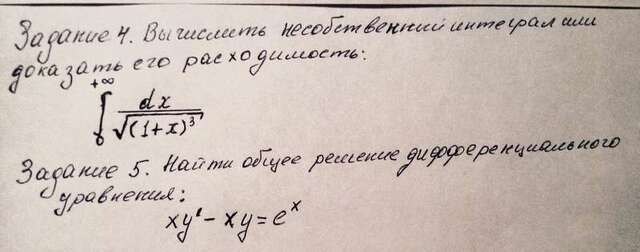 Задание 4. Вычислить несобственный интеграл или
доказать его расходимость:
+∞
∫ dx / √(1+x)³
0
Задание 5. Найти общее решение дифференциального
уравнения:
xy' - xy = eˣ